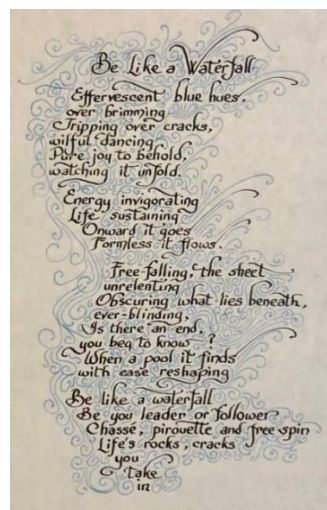 Be Like a Waterfall
Effervescent blue hues,
over brimming
Tripping over cracks,
wilful dancing
Pure joy to behold,
watching it unfold.
Energy invigorating
Life sustaining
Onward it goes
Formless it flows.
Free-falling, the sheet
unrelenting
Obscuring what lies beneath,
ever-blinding,
Is there an end,
you beg to know ?
When a pool it finds
with ease reshaping
Be like a waterfall
Be you leader or follower
Chassé, pirouette and free spin
Life's rocks, cracks
you
take
in